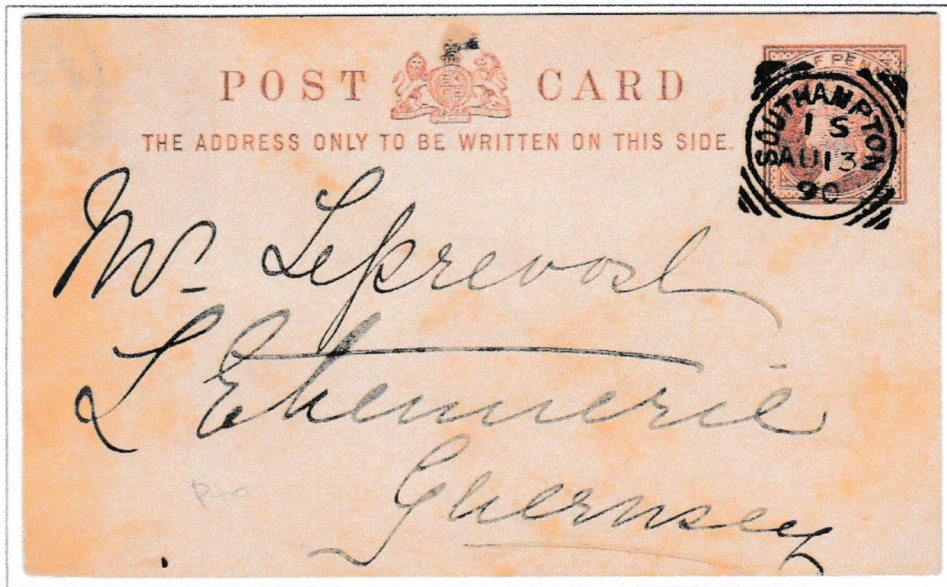 POST CARD
THE ADDRESS ONLY TO BE WRITTEN ON THIS SIDE.
SOUTHAMPTON
1 S
AU 13
90
Mr. Leprevost
L'Ehennerie
Guernsey